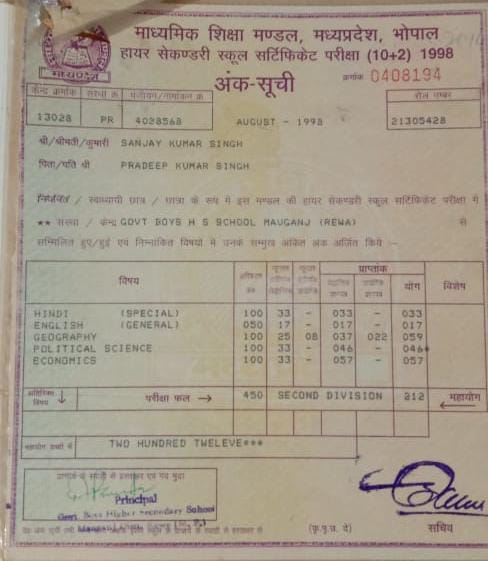 माध्यमिक शिक्षा मण्डल, मध्यप्रदेश, भोपाल
हायर सेकण्डरी स्कूल सर्टिफिकेट परीक्षा (10+2) 1998
मध्यप्रदेश
अंक-सूची
क्रमांक 0408194
केन्द्र क्रमांक संस्था क्र. पंजीयन/नामांकन क्र. रोल नम्बर
13028 PR 4028568 AUGUST - 1998 21305428
श्री/श्रीमती/कुमारी SANJAY KUMAR SINGH
पिता/पति श्री PRADEEP KUMAR SINGH
नियमित / स्वाध्यायी छात्र / छात्रा के रूप में इस मण्डल की हायर सेकण्डरी स्कूल सर्टिफिकेट परीक्षा में
** संस्था / केन्द्र GOVT BOYS H S SCHOOL MAUGANJ (REWA) से
सम्मिलित हुए/हुई एवं निम्नांकित विषयों में उनके सम्मुख अंकित अंक अर्जित किये :-
विषय प्राप्तांक योग विशेष
HINDI (SPECIAL) 100 33 - 033 - 033
ENGLISH (GENERAL) 050 17 - 017 - 017
GEOGRAPHY 100 25 08 037 022 059
POLITICAL SCIENCE 100 33 - 046 - 046*
ECONOMICS 100 33 - 057 - 057
अतिरिक्त विषय ↓ परीक्षा फल → 450 SECOND DIVISION 212 महायोग ←
महायोग शब्दों में TWO HUNDRED TWELEVE***
Principal
Govt. Boys Higher Secondary School
(कृ.पृ.उ. दे)
सचिव